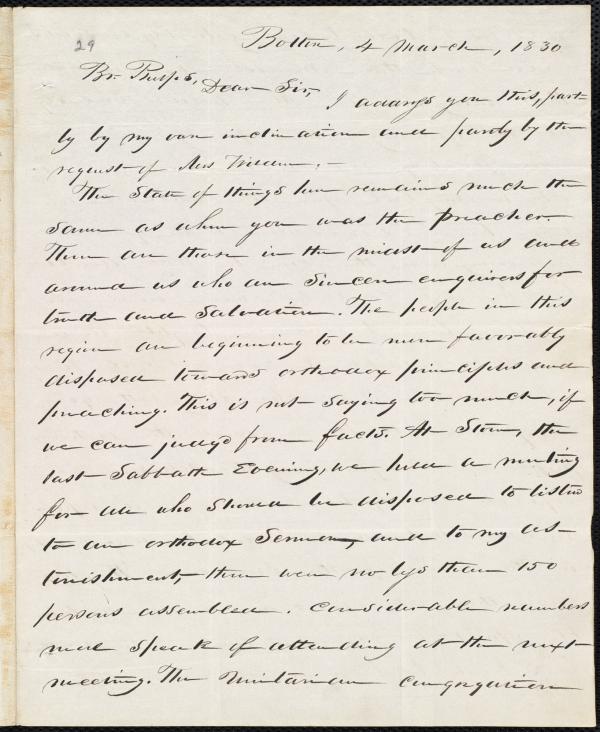 29
Bolton, 4 March, 1830
Br. Phelps,
Dear Sir,
I address you this, part-
ly by my own inclination and partly by the
request of Mrs
The State of things here remains much the
same as when you was the preacher.
There are those in the midst of us and
around us who are sincere enquirers for
truth and salvation. The people in this
region are beginning to be more favorably
disposed towards orthodox principles and
preaching. This is not saying too much, if
we can judge from facts. At Stow, the
last Sabbath Evening, we held a meeting
for all who should be disposed to listen
to an orthodox Sermon, and to my as-
tonishment, there were no less than 150
persons assembled. Considerable numbers
more speak of attending at the next
meeting. The Unitarian congregation